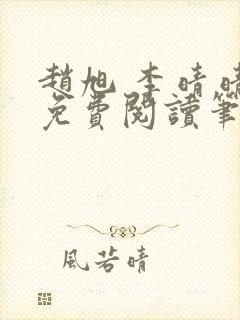 趙旭 李晴晴
免費閱讀筆
風若晴